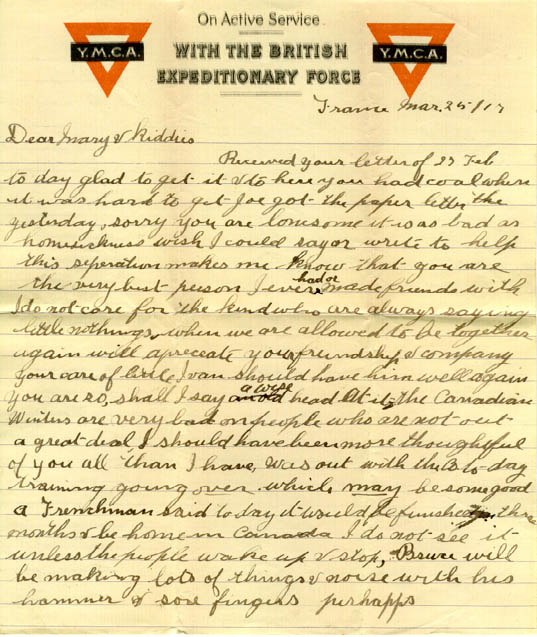 On Active Service
Y.M.C.A. WITH THE BRITISH Y.M.C.A.
EXPEDITIONARY FORCE
France Mar. 25/17
Dear Mary & Kiddies
Received your letter of 27 Feb
to day glad to get it & to here you had coal when
it was hard to get Joe got the paper letter the
yesterday, sorry you are lonesome it is as bad as
homesickness wish I could say or write to help
this seperation makes me know that you are
the very best person I ever had or made friends with
I do not care for the kind who are always saying
little nothings, when we are allowed to be together
again will apreceate your friendship & company
your care of little Ivan should have him well again
you are so, shall I say a wise old head at it, the Canadian
Winters are very bad on people who are not out
a great deal I should have been more thoughtful
of you all than I have, was out with the to-day
training going over which may be some good
a Frenchman said to day it would be finished in three
months & be home in Canada I do not see it
unless the people wake up & stop, Bruce will
be making lots of things & noise with his
hammer & sore fingers perhapps